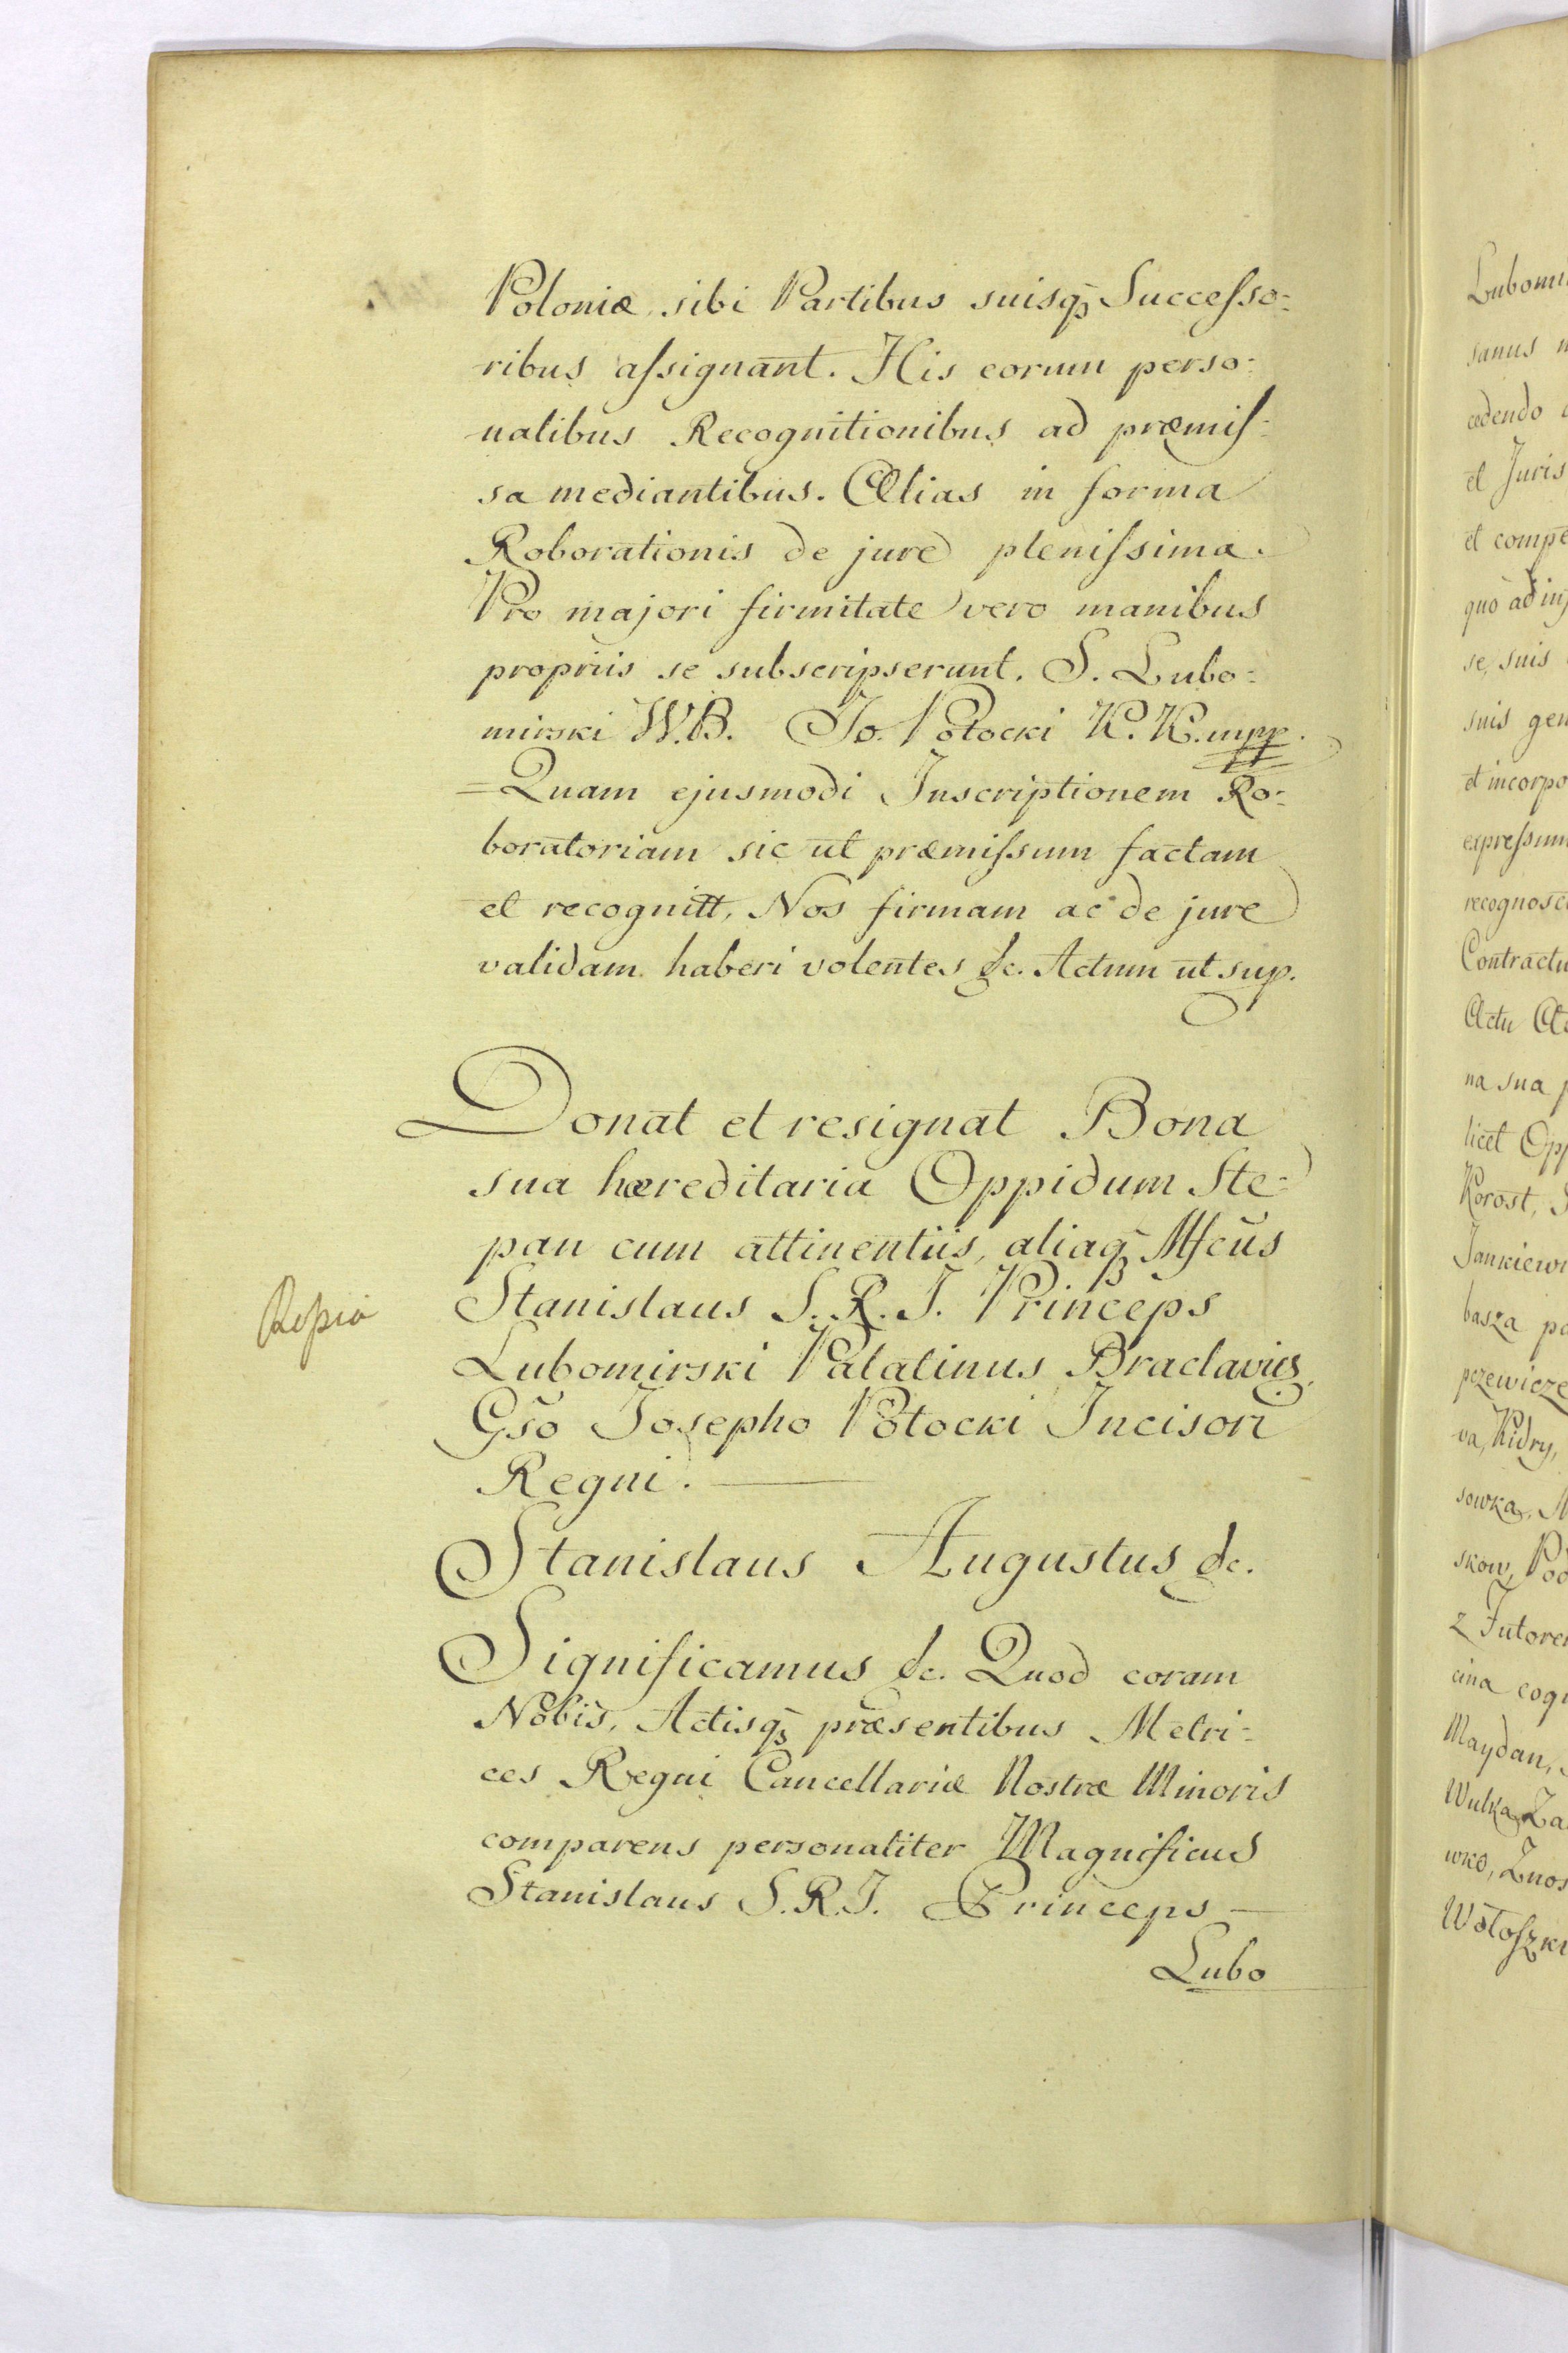 Poloniæ, sibi Partibus suisq̄ȝ Successo=
ribus assignant. His eorum perso=
nalibus Recognitionibus ad præmis=
sa mediantibus. Alias in forma
Roborationis de jure plenissima.
Pro majori firmitate vero manibus
propriis se subscripserunt. S. Lubo=
mirski W.B. Jo. Potocki K. K. mpp.
=Quam ejusmodi Inscriptionem Ro=
boratoriam sic ut præmissum factam
et recognitt, Nos firmam ac de jure
validam haberi volentes &c. Actum ut sup.
Donat et resignat Bona
sua hæreditaria Oppidum Ste=
pan cum attinentiis, aliaq̄ȝ Mfcūs
Stanislaus S. R. J. Princeps
Lubomirski Palatinus Braclavieȝ,
Gs̄o Josepho Potocki Incisori
Regni.
Stanislaus Augustus &c.
Significamus &c. Quod coram
Nobis, Actisq̄ȝ præsentibus Metri=
ces Regni Cancellariæ Nostræ Minoris
comparens personaliter Magnificus
Stanislaus S.R.J. Princeps —
Lubo
Lubomi
sanus
cedendo
et Juris
et compe
quo ad inj
se, suis
suis gen
et incorpo
expressum
recognosc
Contractu
Actu
na sua
licet Opp
Korost,
Jankiew
basza
pczewicze
va, Kidry,
sowka, M
skow,
z Jutore
cina cog
Maydan,
Wulka Za
wko, Znos
Wołoszki